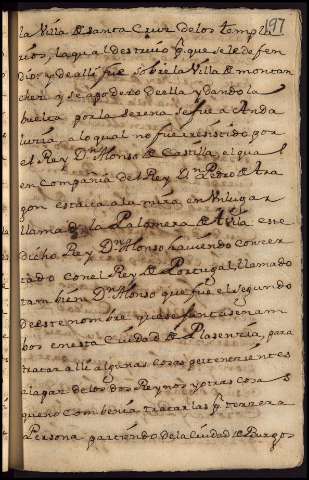 197
la Villa de santa Cruz de los templa
rios, la qual destruio pr. que se le defen
dio: y de alli fue sobre la Villa de montan
chez y se apodero de ella, y dando la
buelta por la serena se fue a Anda
lucia, a lo qual no fue resistido por
el Rey Dn. Alonso de Castilla, el qual
en Compañia del Rey Dn. Pedro de Ara
gon estaua a la mira en Vn lugar
llamado la Palomera de Auila este
dicho Rey Dn. Alonso hauiendo Concer
tado con el Rey de Portugal, llamado
tambien Dn. Alonso que fue el segundo
de este nombre que se juntasen am
bos en esta Ciudad de Plasenzia, para
tratar alli algunas cosas pertenecientes
a la paz de los dos Reynos y otras cosas
que no Combenia tratarlas pr. terzera
Persona partiendo de la Ciudad de Burgos